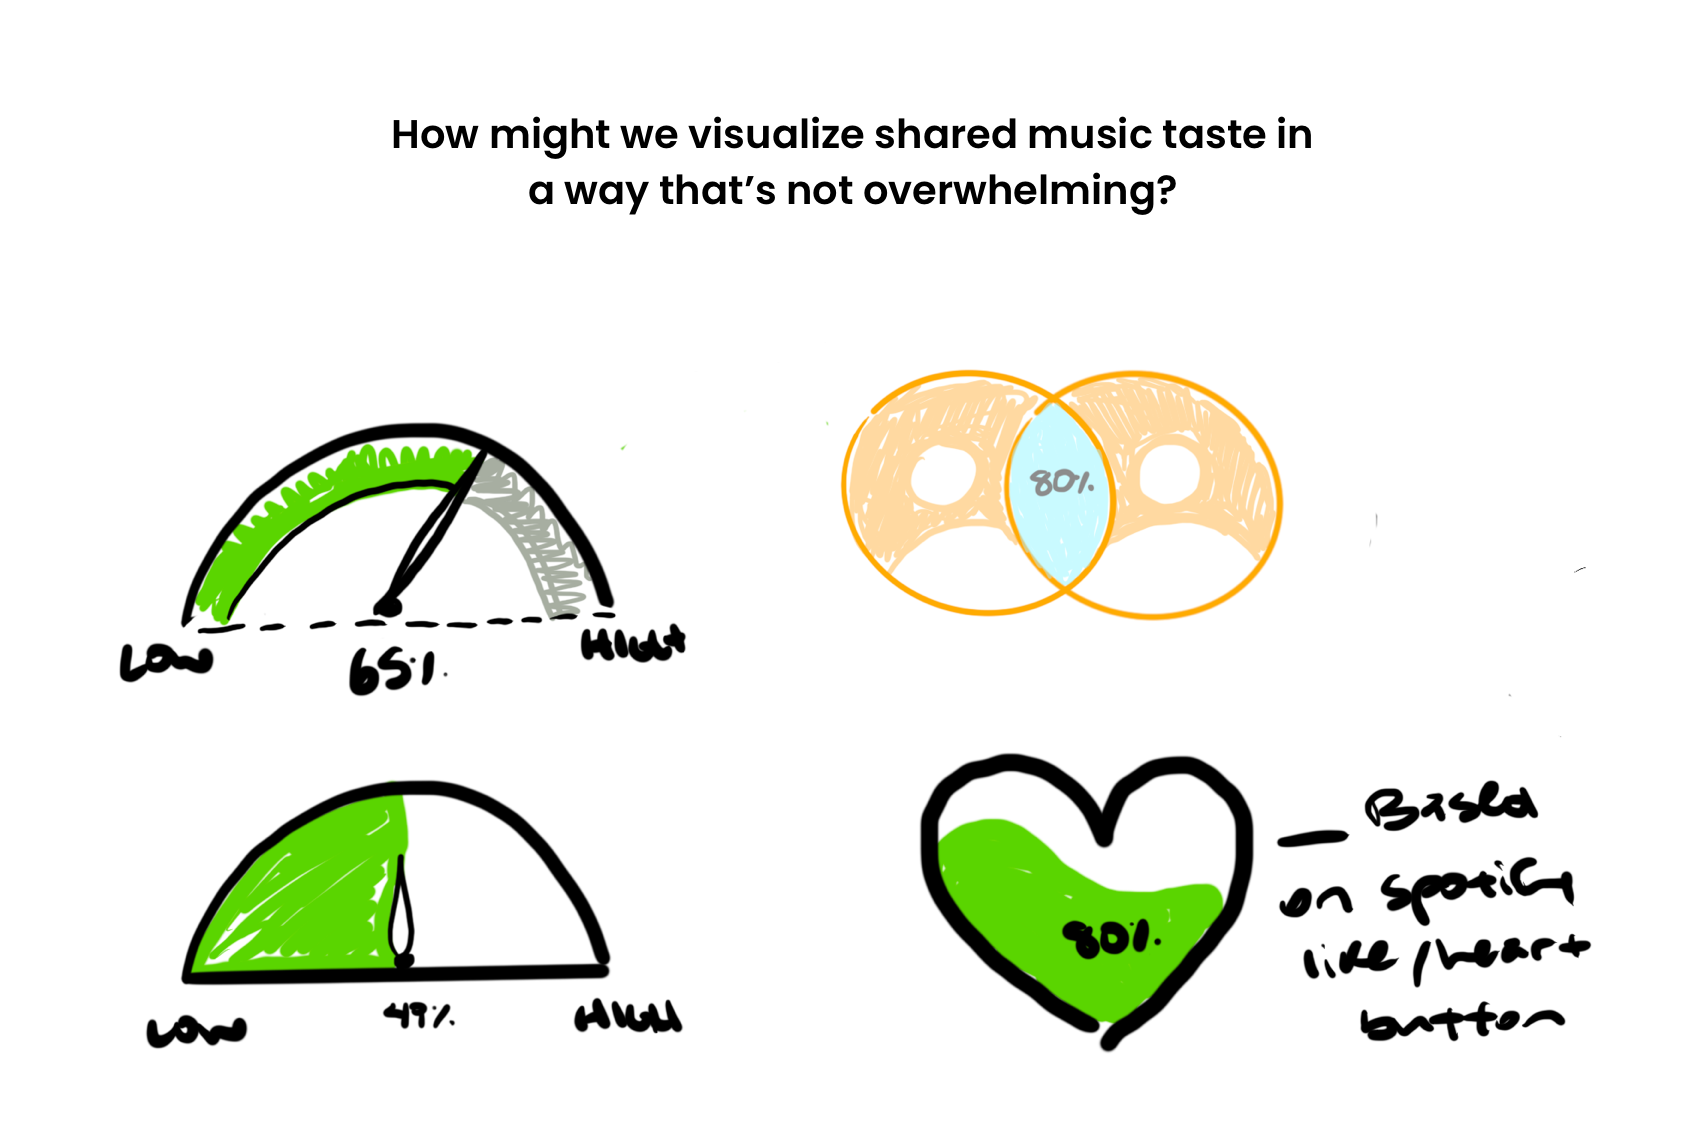 How might we visualize shared music taste in
a way that’s not overwhelming?
80%
LOW
65%
HIGH
80%
LOW
49%
HIGH
— Based
on spotify
like/heart
button